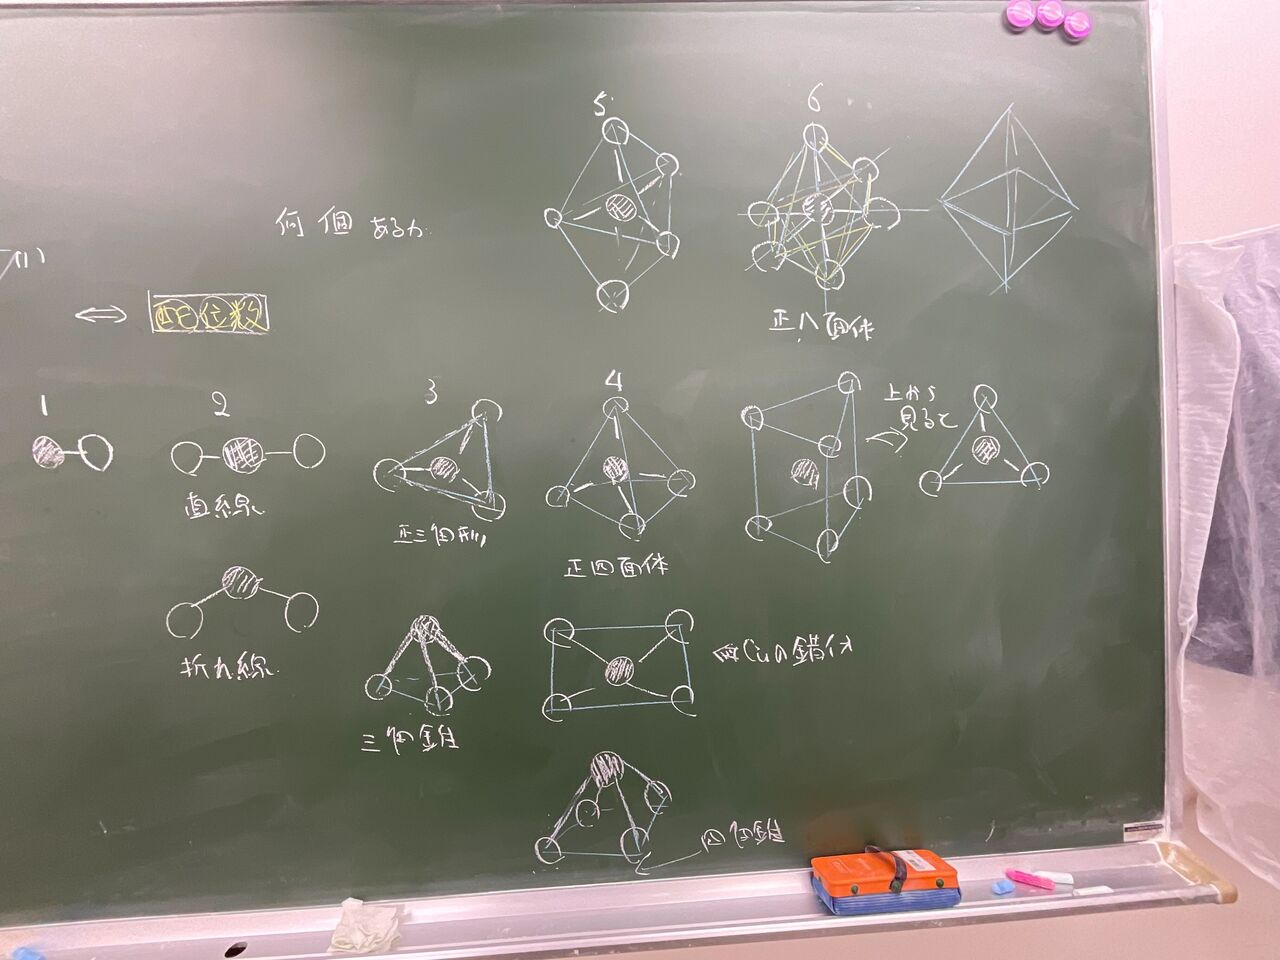 5
6
何個あるか
正八面体
配位数
1
2
3
4
上から
見ると
直線
正三角形
正四面体
折れ線
Cuの錯体
三角錐
四角錐